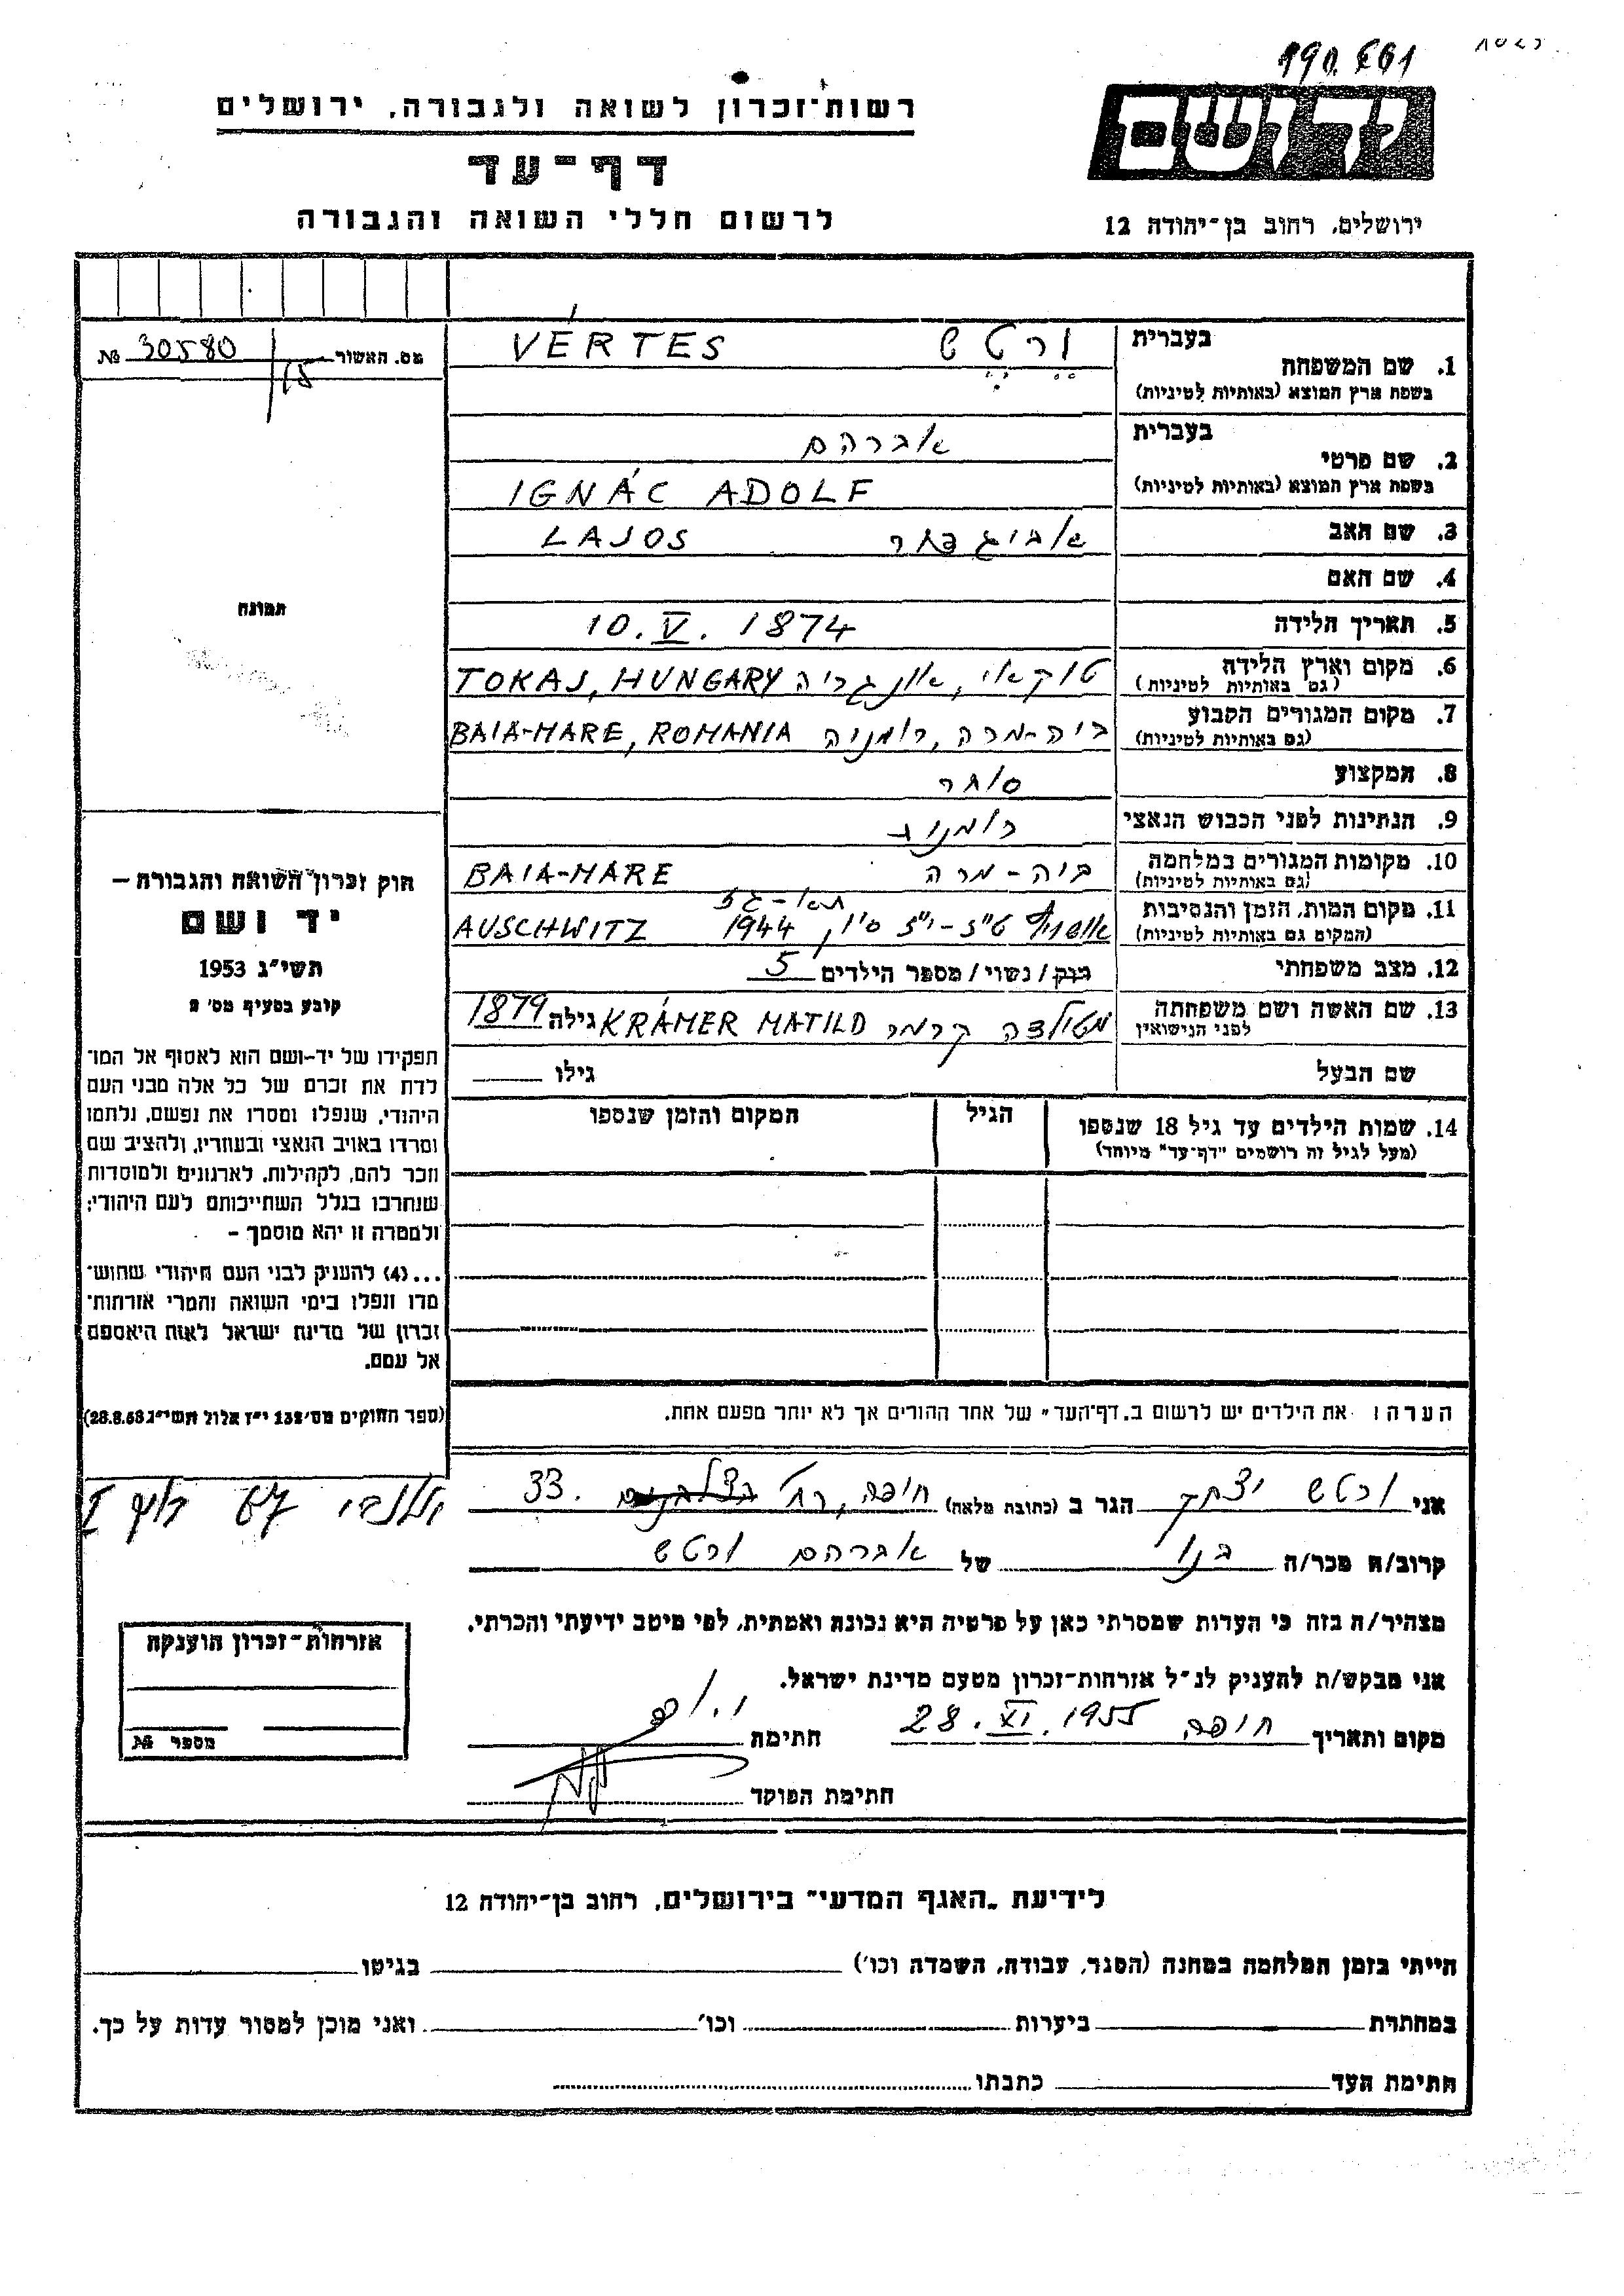 190.661
ידושם
רשות־זכרון לשואה ולגבורה, ירושלים
דף־עד
לרשום חללי השואה והגבורה
ירושלים, רחוב בן־יהודה 12
מס. האשור 30580 №
15
בעברית
1. שם המשפחה
בשפת ארץ המוצא (באותיות לטיניות)
ורטש VÉRTES
בעברית
2. שם פרטי
בשפת ארץ המוצא (באותיות לטיניות)
אברהם
IGNÁC ADOLF
3. שם האב
LAJOS
4. שם האם
5. תאריך הלידה
10. V. 1874
6. מקום וארץ הלידה
(גם באותיות לטיניות)
טוקאי, אונגריה TOKAJ, HUNGARY
7. מקום המגורים הקבוע
(גם באותיות לטיניות)
ביה-מרה, רומניה BAIA-MARE, ROMANIA
8. המקצוע
סוחר
9. הנתינות לפני הכבוש הנאצי
רומנית
10. מקומות המגורים במלחמה
(גם באותיות לטיניות)
ביה-מרה BAIA-MARE
11. מקום המות, הזמן והנסיבות
(המקום גם באותיות לטיניות)
ט"ז-י"ז סיון 1944 AUSCHWITZ
12. מצב משפחתי
רווק / נשוי / מספר הילדים 5
13. שם האשה ושם משפחתה
לפני הנישואין
מטילדה קרמר KRÁMER MATILD גילה 1879
שם הבעל
גילו
14. שמות הילדים עד גיל 18 שנספו
(מעל לגיל זה רושמים "דף־עד" מיוחד)
הגיל
המקום והזמן שנספו
הערה: את הילדים יש לרשום ב„דף־העד" של אחד ההורים אך לא יותר מפעם אחת.
תמונה
חוק זכרון השואה והגבורה –
יד ושם
תשי"ג 1953
קובע בסעיף מס' 2
תפקידו של יד-ושם הוא לאסוף אל המו־
לדת את זכרם של כל אלה מבני העם
היהודי, שנפלו ומסרו את נפשם, נלחמו
ומרדו באויב הנאצי ובעוזריו, ולהציב שם
וזכר להם, לקהילות, לארגונים ולמוסדות
שנחרבו בגלל השתייכותם לעם היהודי;
ולמטרה זו יהא מוסמך –
...(4) להעניק לבני העם היהודי שהוש־
מדו ונפלו בימי השואה והמרי אזרחות־
זכרון של מדינת ישראל לאות היאספם
אל עמם.
(ספר החוקים מס' 132 י"ז אלול תשי"ג 28.8.53)
אני ורטש יצחק הגר ב (כתובת מלאה) חיפה, רח' 33.
67
קרוב/ה מכר/ה בנו של אברהם ורטש
מצהיר/ה בזה כי העדות שמסרתי כאן על פרטיה היא נכונה ואמתית, לפי מיטב ידיעתי והכרתי.
אני מבקש/ת להעניק לנ"ל אזרחות־זכרון מטעם מדינת ישראל.
מקום ותאריך חיפה 28. XI. 1955 חתימת
חתימת הפוקד
אזרחות־זכרון הוענקה
מספר №
לידיעת „האגף המדעי" בירושלים, רחוב בן־יהודה 12
הייתי בזמן המלחמה במחנה (הסגר, עבודה, השמדה וכו') בגיטו
במחתרת ביערות וכו' ואני מוכן למסור עדות על כך.
חתימת העד כתבתו